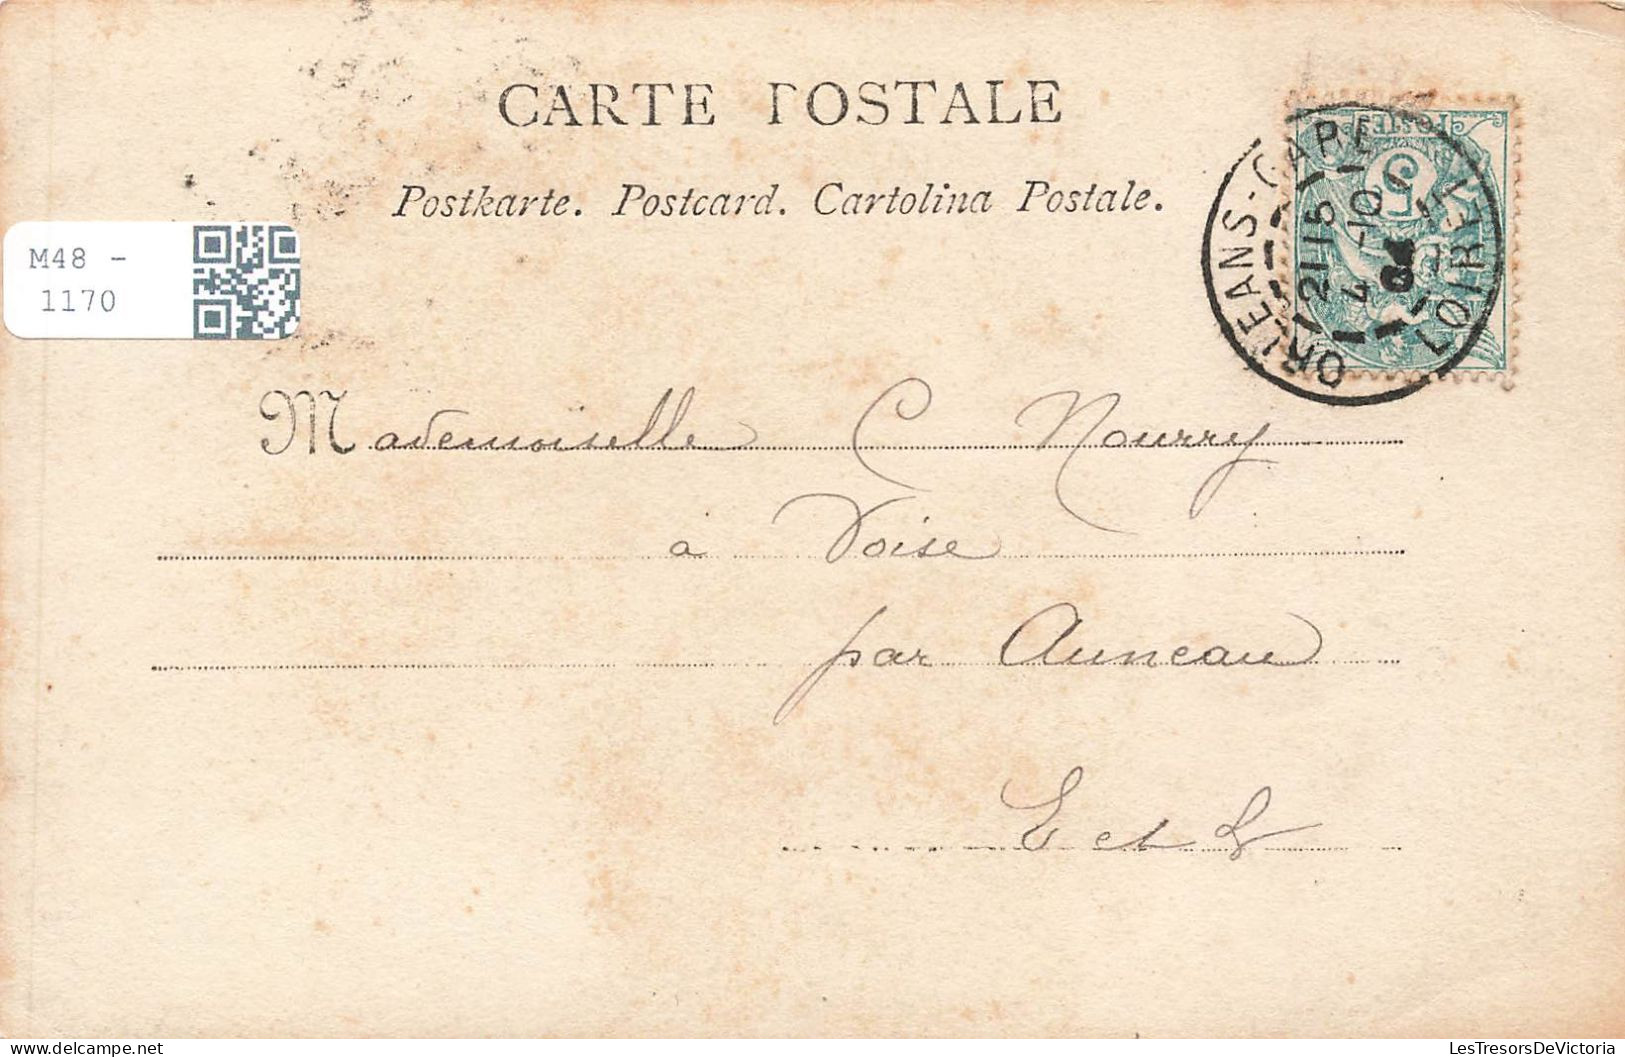 CARTE POSTALE
Postkarte. Postcard. Cartolina Postale.
M48 -
1170
POSTES
5
ORLEANS-GARE
2115
4-10
04
LOIRET
Mademoiselle C Nourry
à Voise
par Auneau
E et L
LesTresorsDeVictoria
delcampe.net